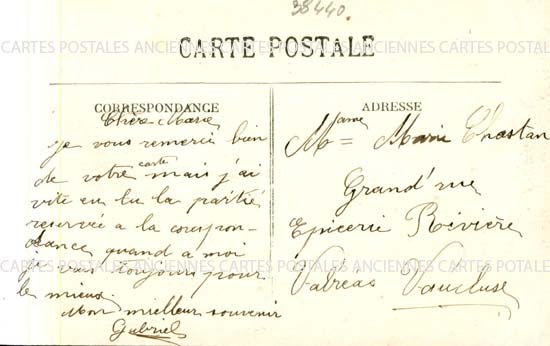 38440.
CARTE POSTALE
CARTES POSTALES ANCIENNES CARTES POSTALES ANCIENNES CARTES POSTALES
CORRESPONDANCE
Chère Marie
je vous remerci bien
de votre carte mais j'ai
vite eu lu la partie
reservée a la correspon-
dance quand a moi
je vais toujours pour
le mieux
Mon meilleur souvenir
Gabriel
ADRESSE
Mame Marie Chastan
Grand'rue
Epicerie Rivière
Valréas Vaucluse
CARTES POSTALES ANCIENNES CARTES POSTALES ANCIENNES CARTES POSTALES